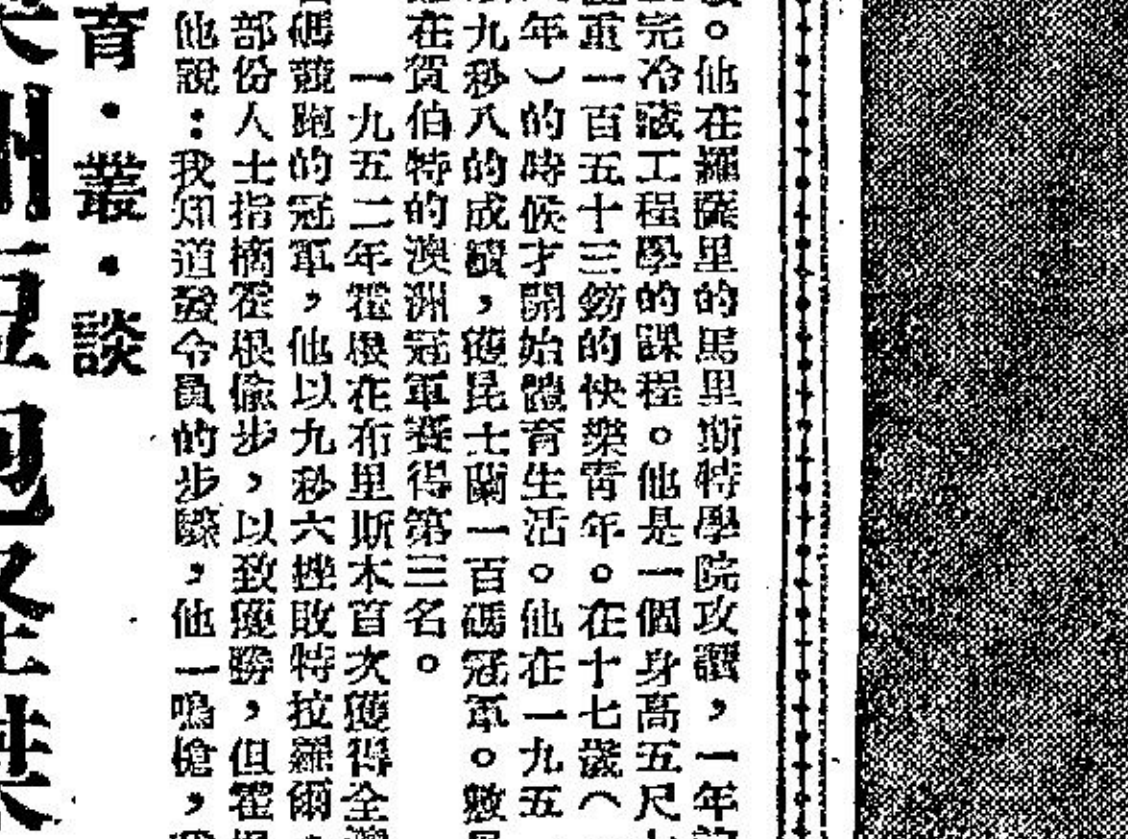 。他在羅薩里的馬里斯特學院攻讀，一年
完冷藏工程學的課程。他是一個身高五尺
重一百五十三鎊的快樂靑年。在十七歲（一
年）的時候才開始體育生活。他在一九五
九秒八的成績，獲昆士蘭一百碼冠軍。數
在賀伯特的澳洲冠軍賽得第三名。
一九五二年霍根在布里斯本首次獲得全
碼競跑的冠軍，他以九秒六挫敗特拉羅爾
部份人士指摘霍根偷步，以致獲勝，但霍
他說：我知道發令員的步驟，他一鳴槍，
育・叢・談
洲短跑